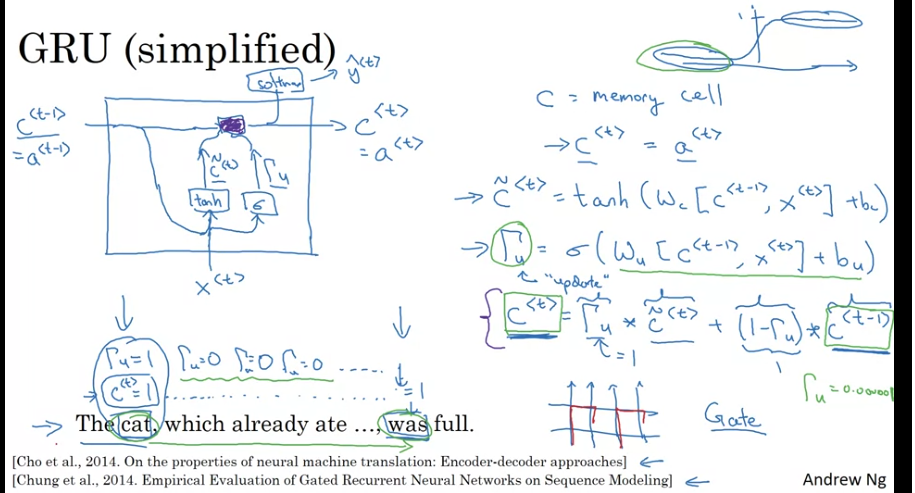 GRU (simplified)
softmax → ŷ^{<t>}
c^{<t-1>}
= a^{<t-1>}
c̃^{<t>}
Γ_u
tanh
σ
x^{<t>}
c^{<t>}
= a^{<t>}
1
C = memory cell
→ c^{<t>} = a^{<t>}
→ c̃^{<t>} = tanh(W_c [c^{<t-1>}, x^{<t>}] + b_c)
→ Γ_u = σ(W_u [c^{<t-1>}, x^{<t>}] + b_u)
"update"
c^{<t>} = Γ_u * c̃^{<t>} + (1-Γ_u) * c^{<t-1>}
= 1
1
Γ_u = 0.000001
Γ_u=1 Γ_u=0 Γ_u=0 Γ_u=0 .....
c^{<t>}=1 ........... = 1
→ The cat, which already ate ..., was full.
Gate
[Cho et al., 2014. On the properties of neural machine translation: Encoder-decoder approaches] ←
[Chung et al., 2014. Empirical Evaluation of Gated Recurrent Neural Networks on Sequence Modeling] ←
Andrew Ng